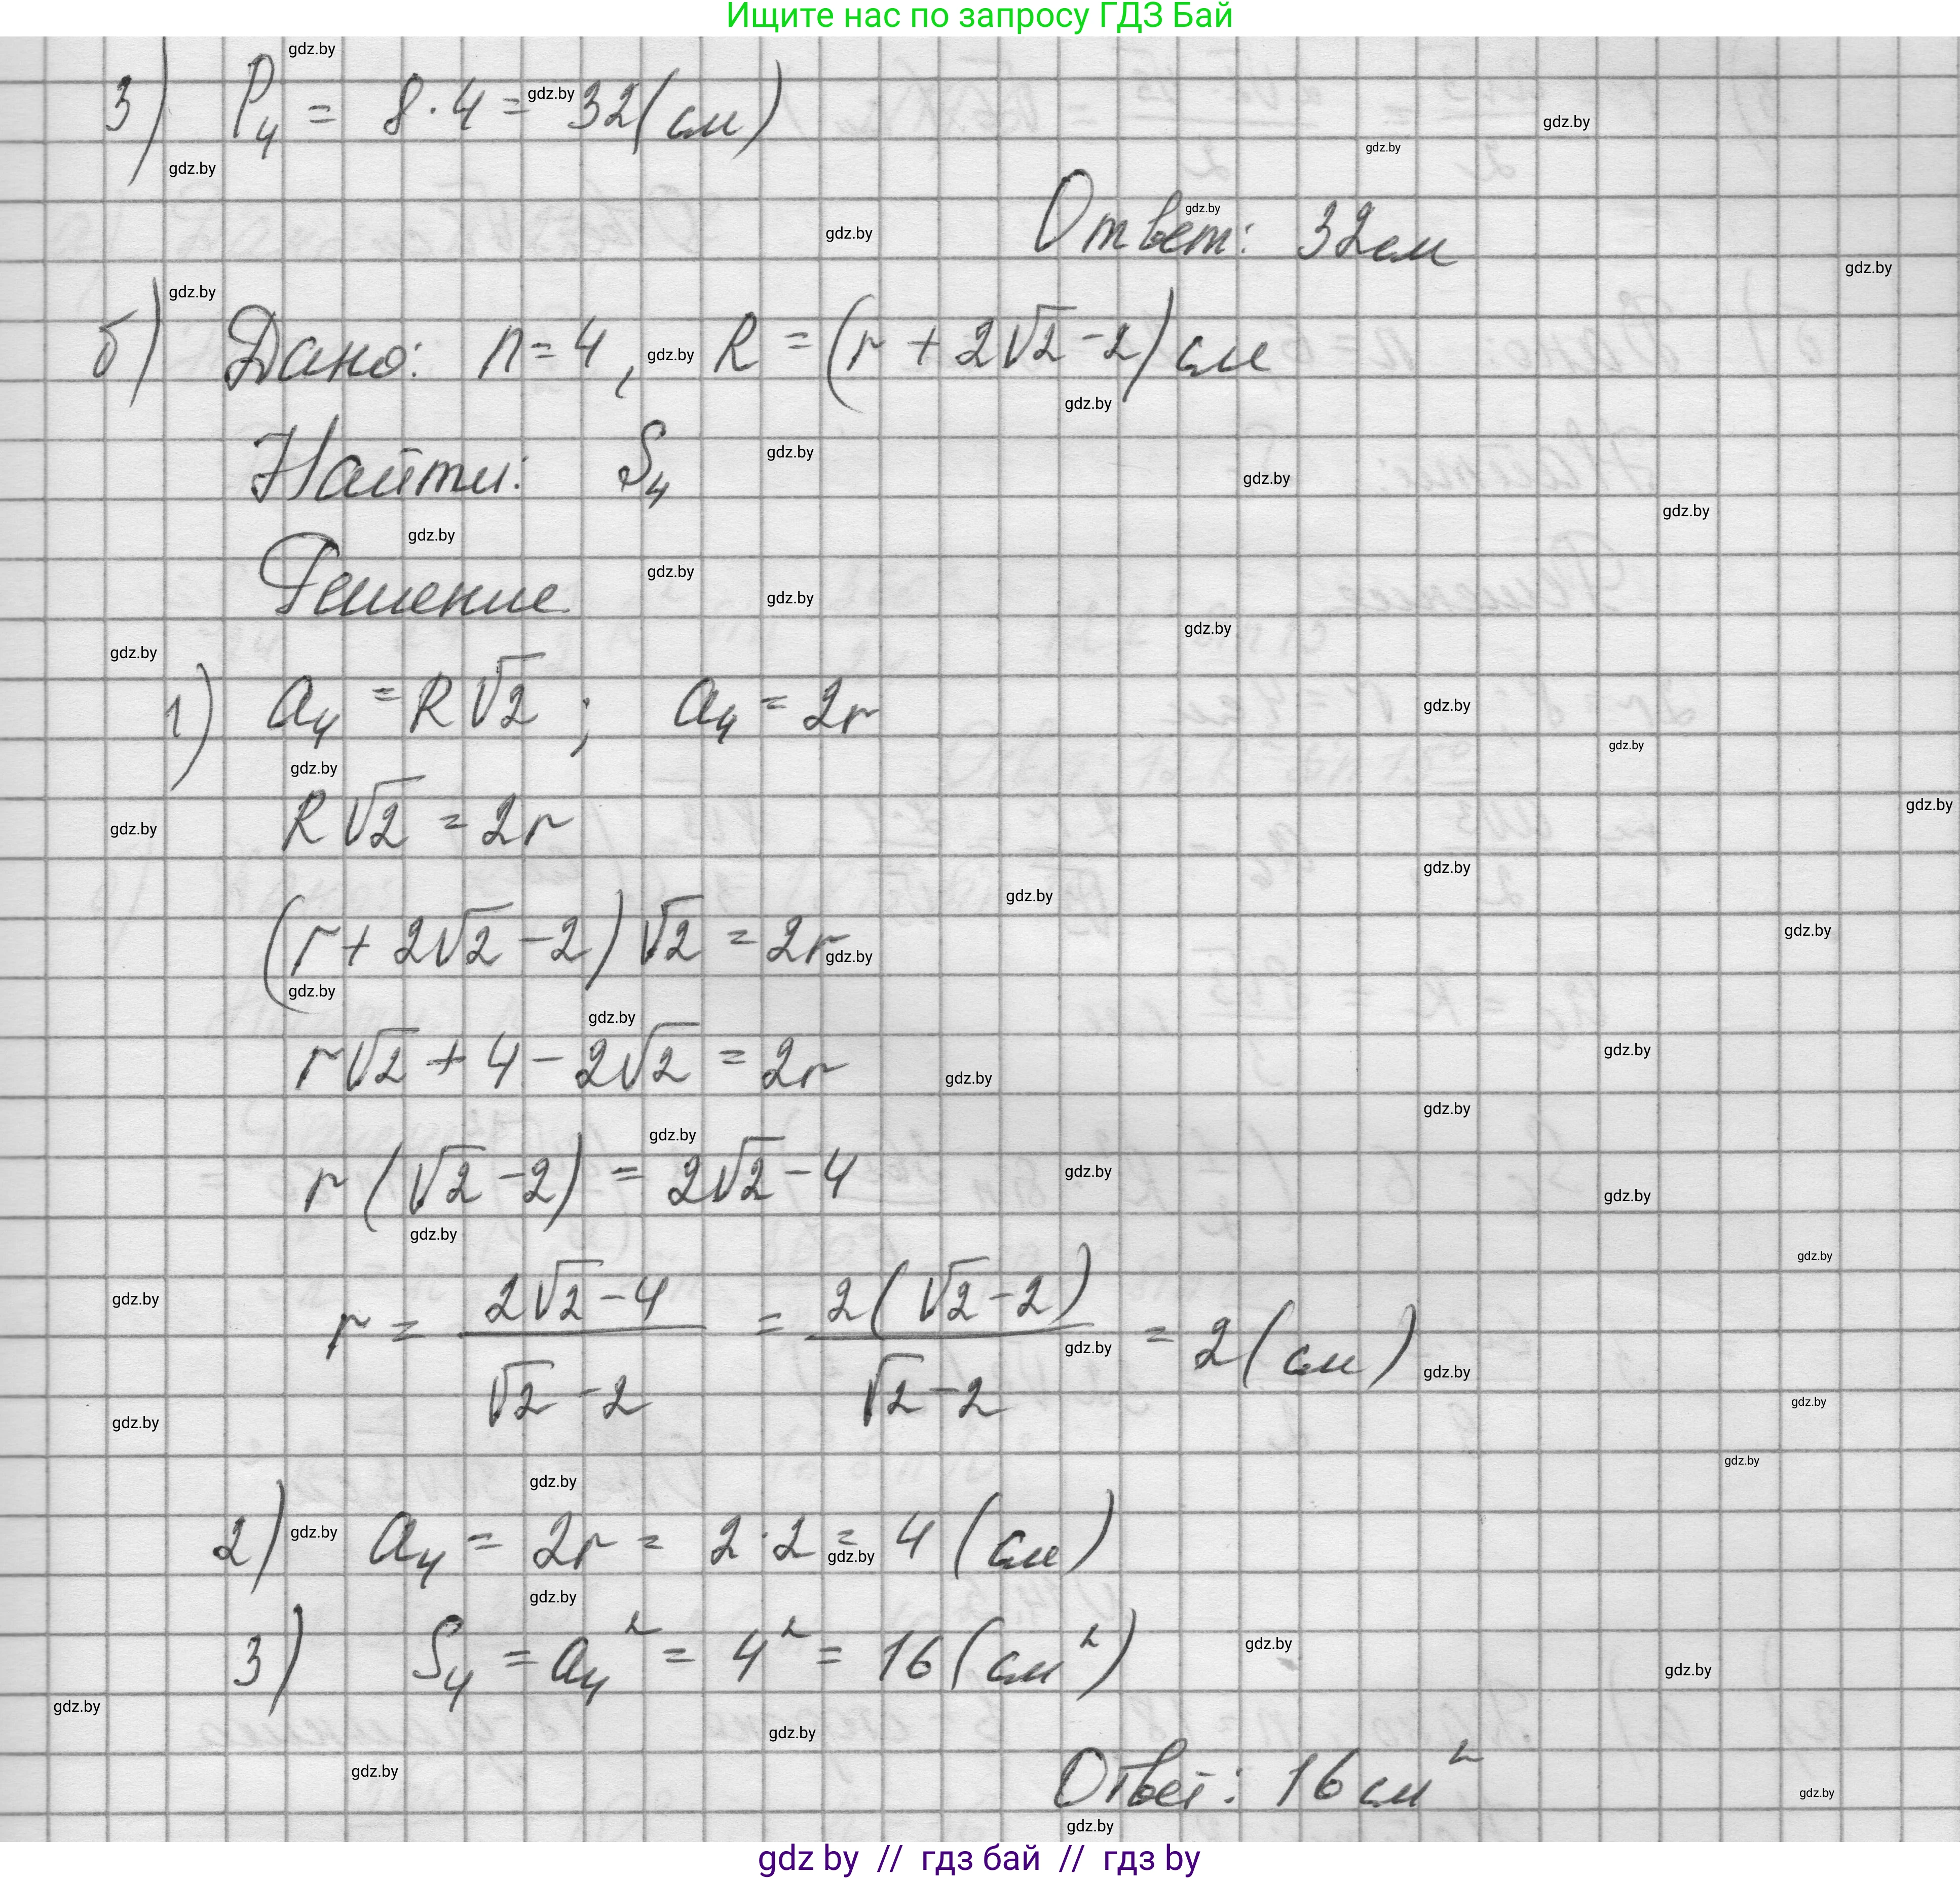 Ищите нас по запросу ГДЗ Бай
3) P₄ = 8·4 = 32(см)
Ответ: 32см
б) Дано: n=4, R = (r + 2√2 - 2) см
Найти: S₄
Решение
1) a₄ = R√2; a₄ = 2r
R√2 = 2r
(r + 2√2 - 2)√2 = 2r
r√2 + 4 - 2√2 = 2r
r(√2 - 2) = 2√2 - 4
r = (2√2 - 4)/(√2 - 2) = 2(√2 - 2)/(√2 - 2) = 2(см)
2) a₄ = 2r = 2·2 = 4 (см)
3) S₄ = a₄² = 4² = 16 (см²)
Ответ: 16 см²
gdz by // гдз бай // гдз by